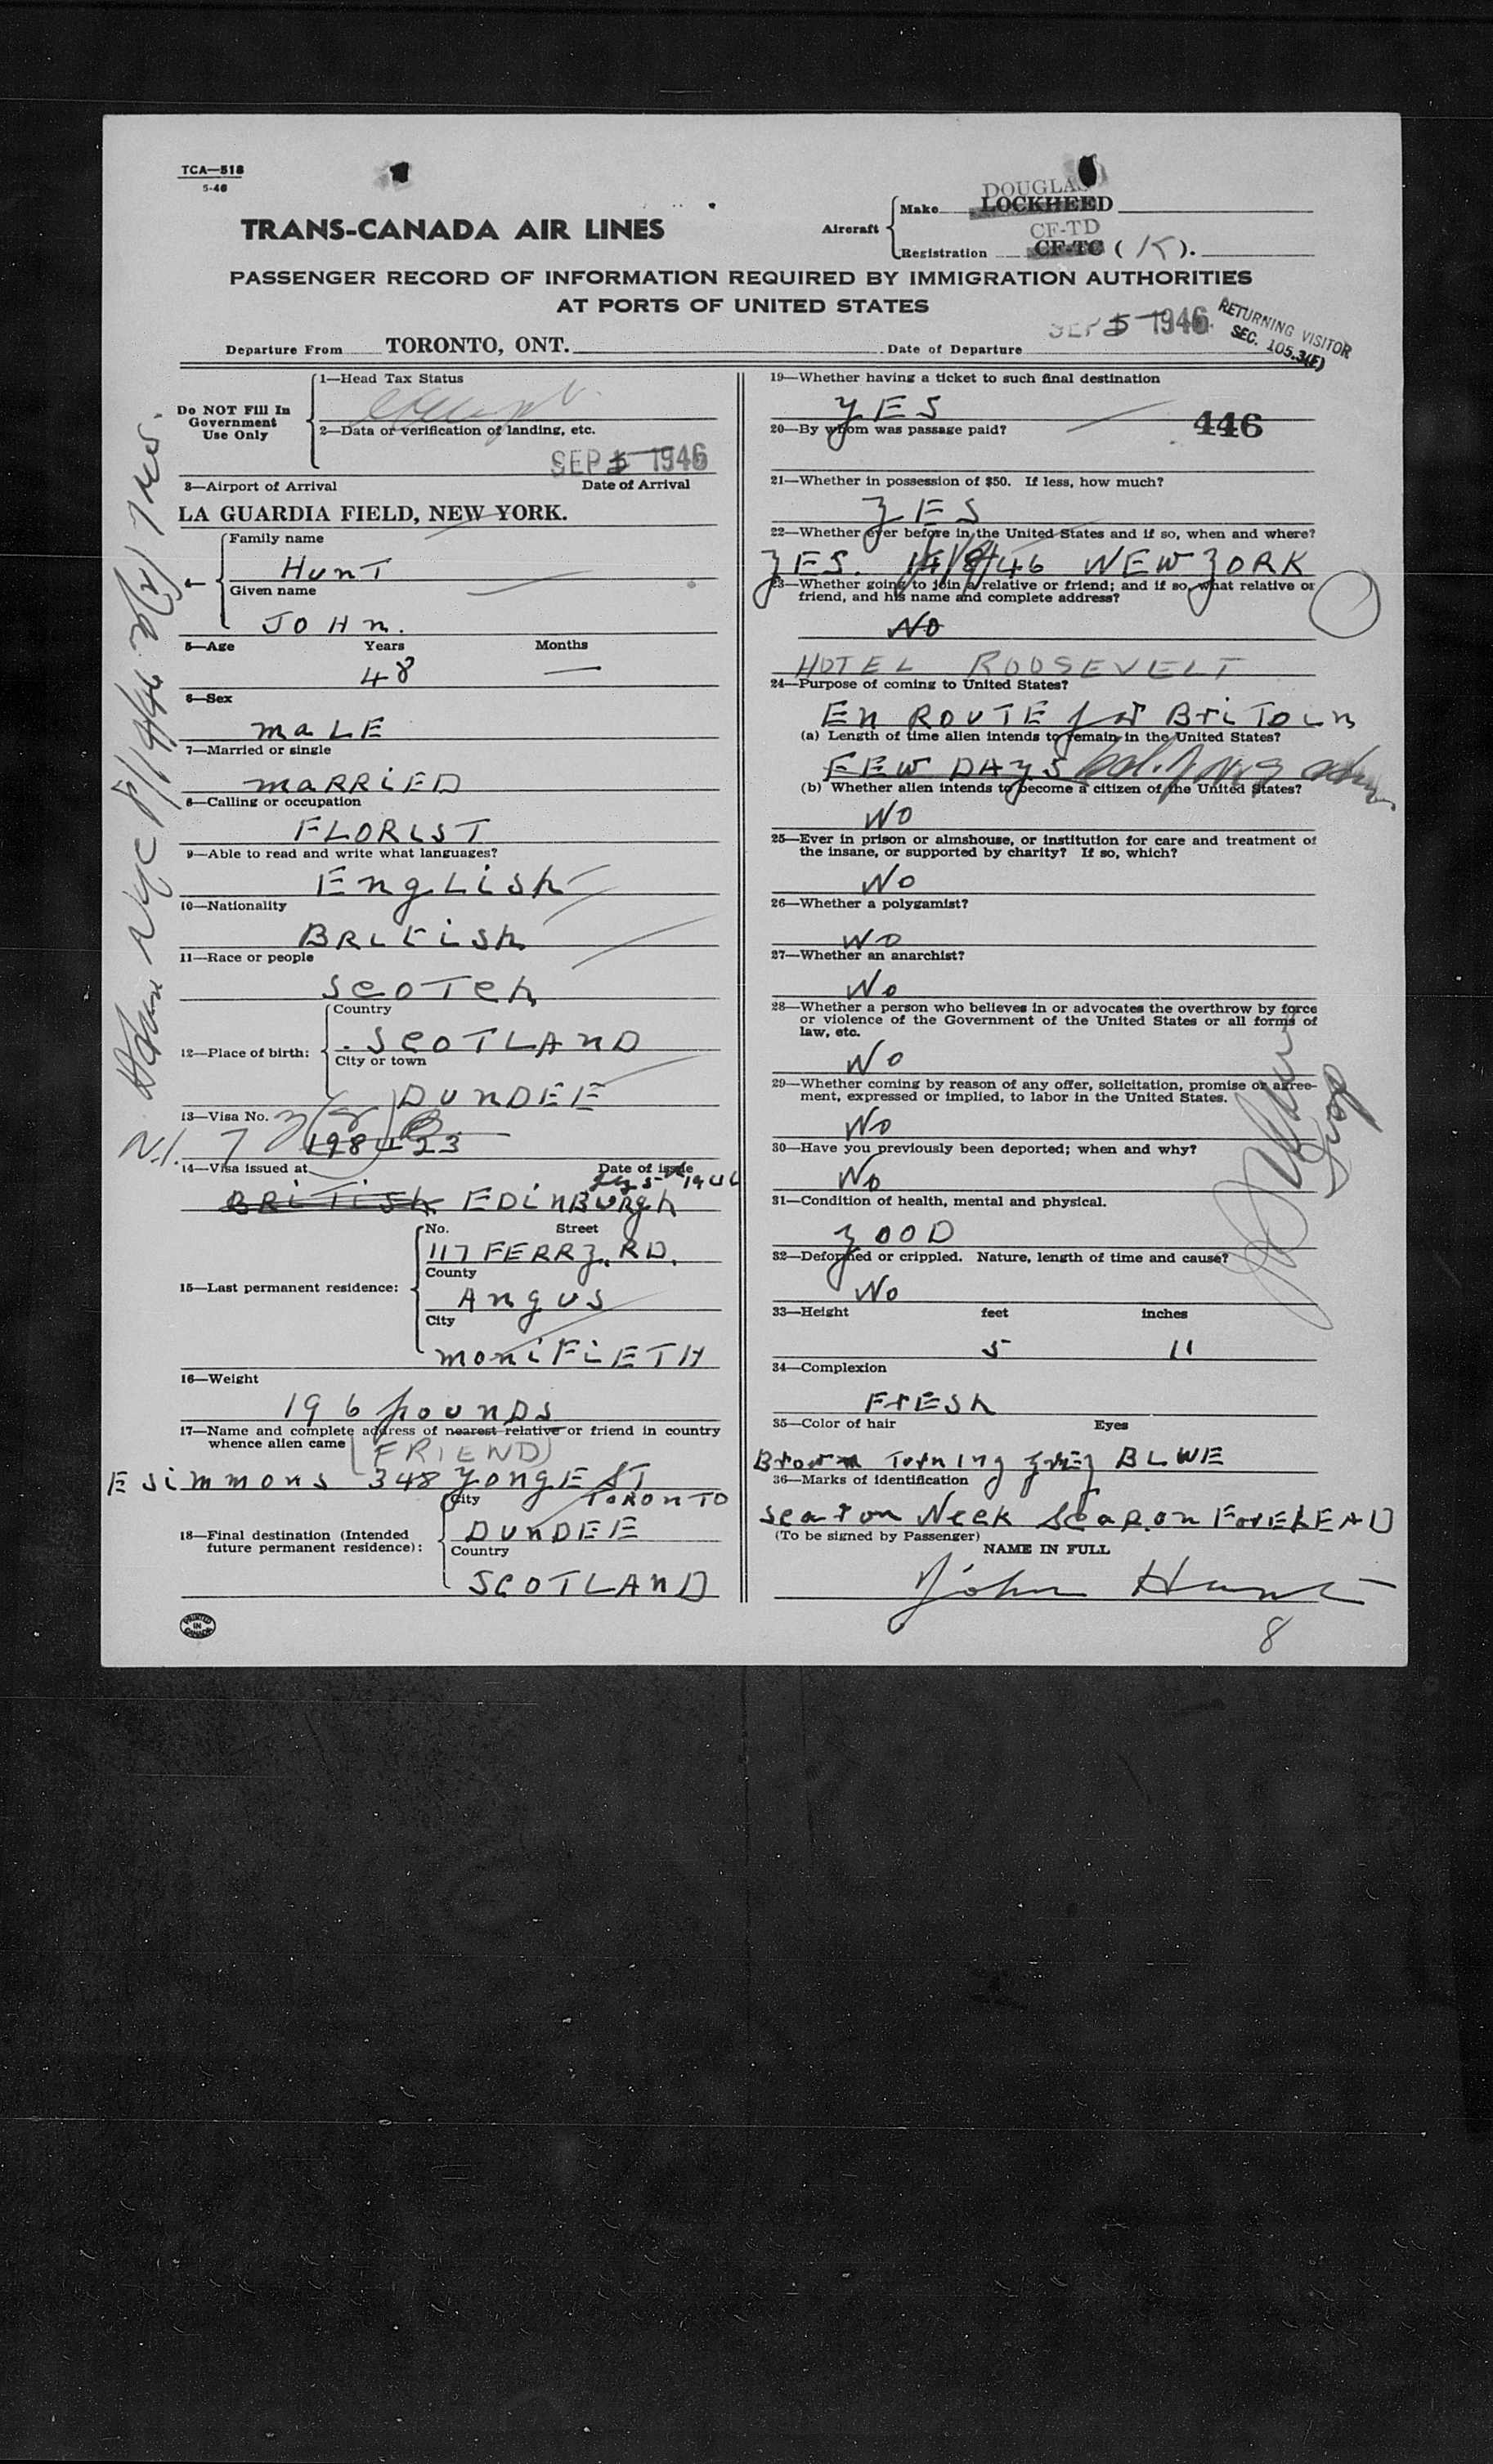 TCA—518
5-46
TRANS-CANADA AIR LINES
Aircraft
Make DOUGLAS
LOCKHEED
Registration CF-TD
CF-TC ( K ).
PASSENGER RECORD OF INFORMATION REQUIRED BY IMMIGRATION AUTHORITIES
AT PORTS OF UNITED STATES
Departure From TORONTO, ONT. Date of Departure SEP 5 1946
RETURNING VISITOR
SEC. 105.3(F)
Do NOT Fill In
Government
Use Only
1—Head Tax Status
2—Data or verification of landing, etc.
SEP 5 1946
3—Airport of Arrival Date of Arrival
LA GUARDIA FIELD, NEW YORK.
4
Family name
HUNT
Given name
JOHN.
5—Age Years Months
48 —
6—Sex
MALE
7—Married or single
MARRIED
8—Calling or occupation
FLORIST
9—Able to read and write what languages?
ENGLISH
10—Nationality
BRITISH
11—Race or people
SCOTCH
12—Place of birth:
Country
SCOTLAND
City or town
DUNDEE
13—Visa No.
N.I. 7
14—Visa issued at Date of issue
BRITISH EDINBURGH
15—Last permanent residence:
No. Street
117 FERRY. RD.
County
ANGUS
City
MONIFIETH
16—Weight
196 POUNDS
17—Name and complete address of nearest relative or friend in country
whence alien came
(FRIEND)
E SIMMONS 348 YONGE ST
TORONTO
18—Final destination (Intended
future permanent residence):
City
DUNDEE
Country
SCOTLAND
PRINTED
IN
CANADA
19—Whether having a ticket to such final destination
YES
446
20—By whom was passage paid?
21—Whether in possession of $50. If less, how much?
YES
22—Whether ever before in the United States and if so, when and where?
YES. 14/8/46 NEW YORK
23—Whether going to join a relative or friend; and if so, what relative or
friend, and his name and complete address?
NO
HOTEL ROOSEVELT
24—Purpose of coming to United States?
EN ROUTE for BRITAIN
(a) Length of time alien intends to remain in the United States?
FEW DAYS
(b) Whether alien intends to become a citizen of the United States?
NO
25—Ever in prison or almshouse, or institution for care and treatment of
the insane, or supported by charity? If so, which?
NO
26—Whether a polygamist?
NO
27—Whether an anarchist?
NO
28—Whether a person who believes in or advocates the overthrow by force
or violence of the Government of the United States or all forms of
law, etc.
NO
29—Whether coming by reason of any offer, solicitation, promise or agree-
ment, expressed or implied, to labor in the United States.
NO
30—Have you previously been deported; when and why?
NO
31—Condition of health, mental and physical.
GOOD
32—Deformed or crippled. Nature, length of time and cause?
NO
33—Height feet inches
5 11
34—Complexion
FRESH
35—Color of hair Eyes
BROWN TURNING GREY BLUE
36—Marks of identification
SCAR ON NECK SCAR ON FOREHEAD
(To be signed by Passenger)
NAME IN FULL
John Hunt
8